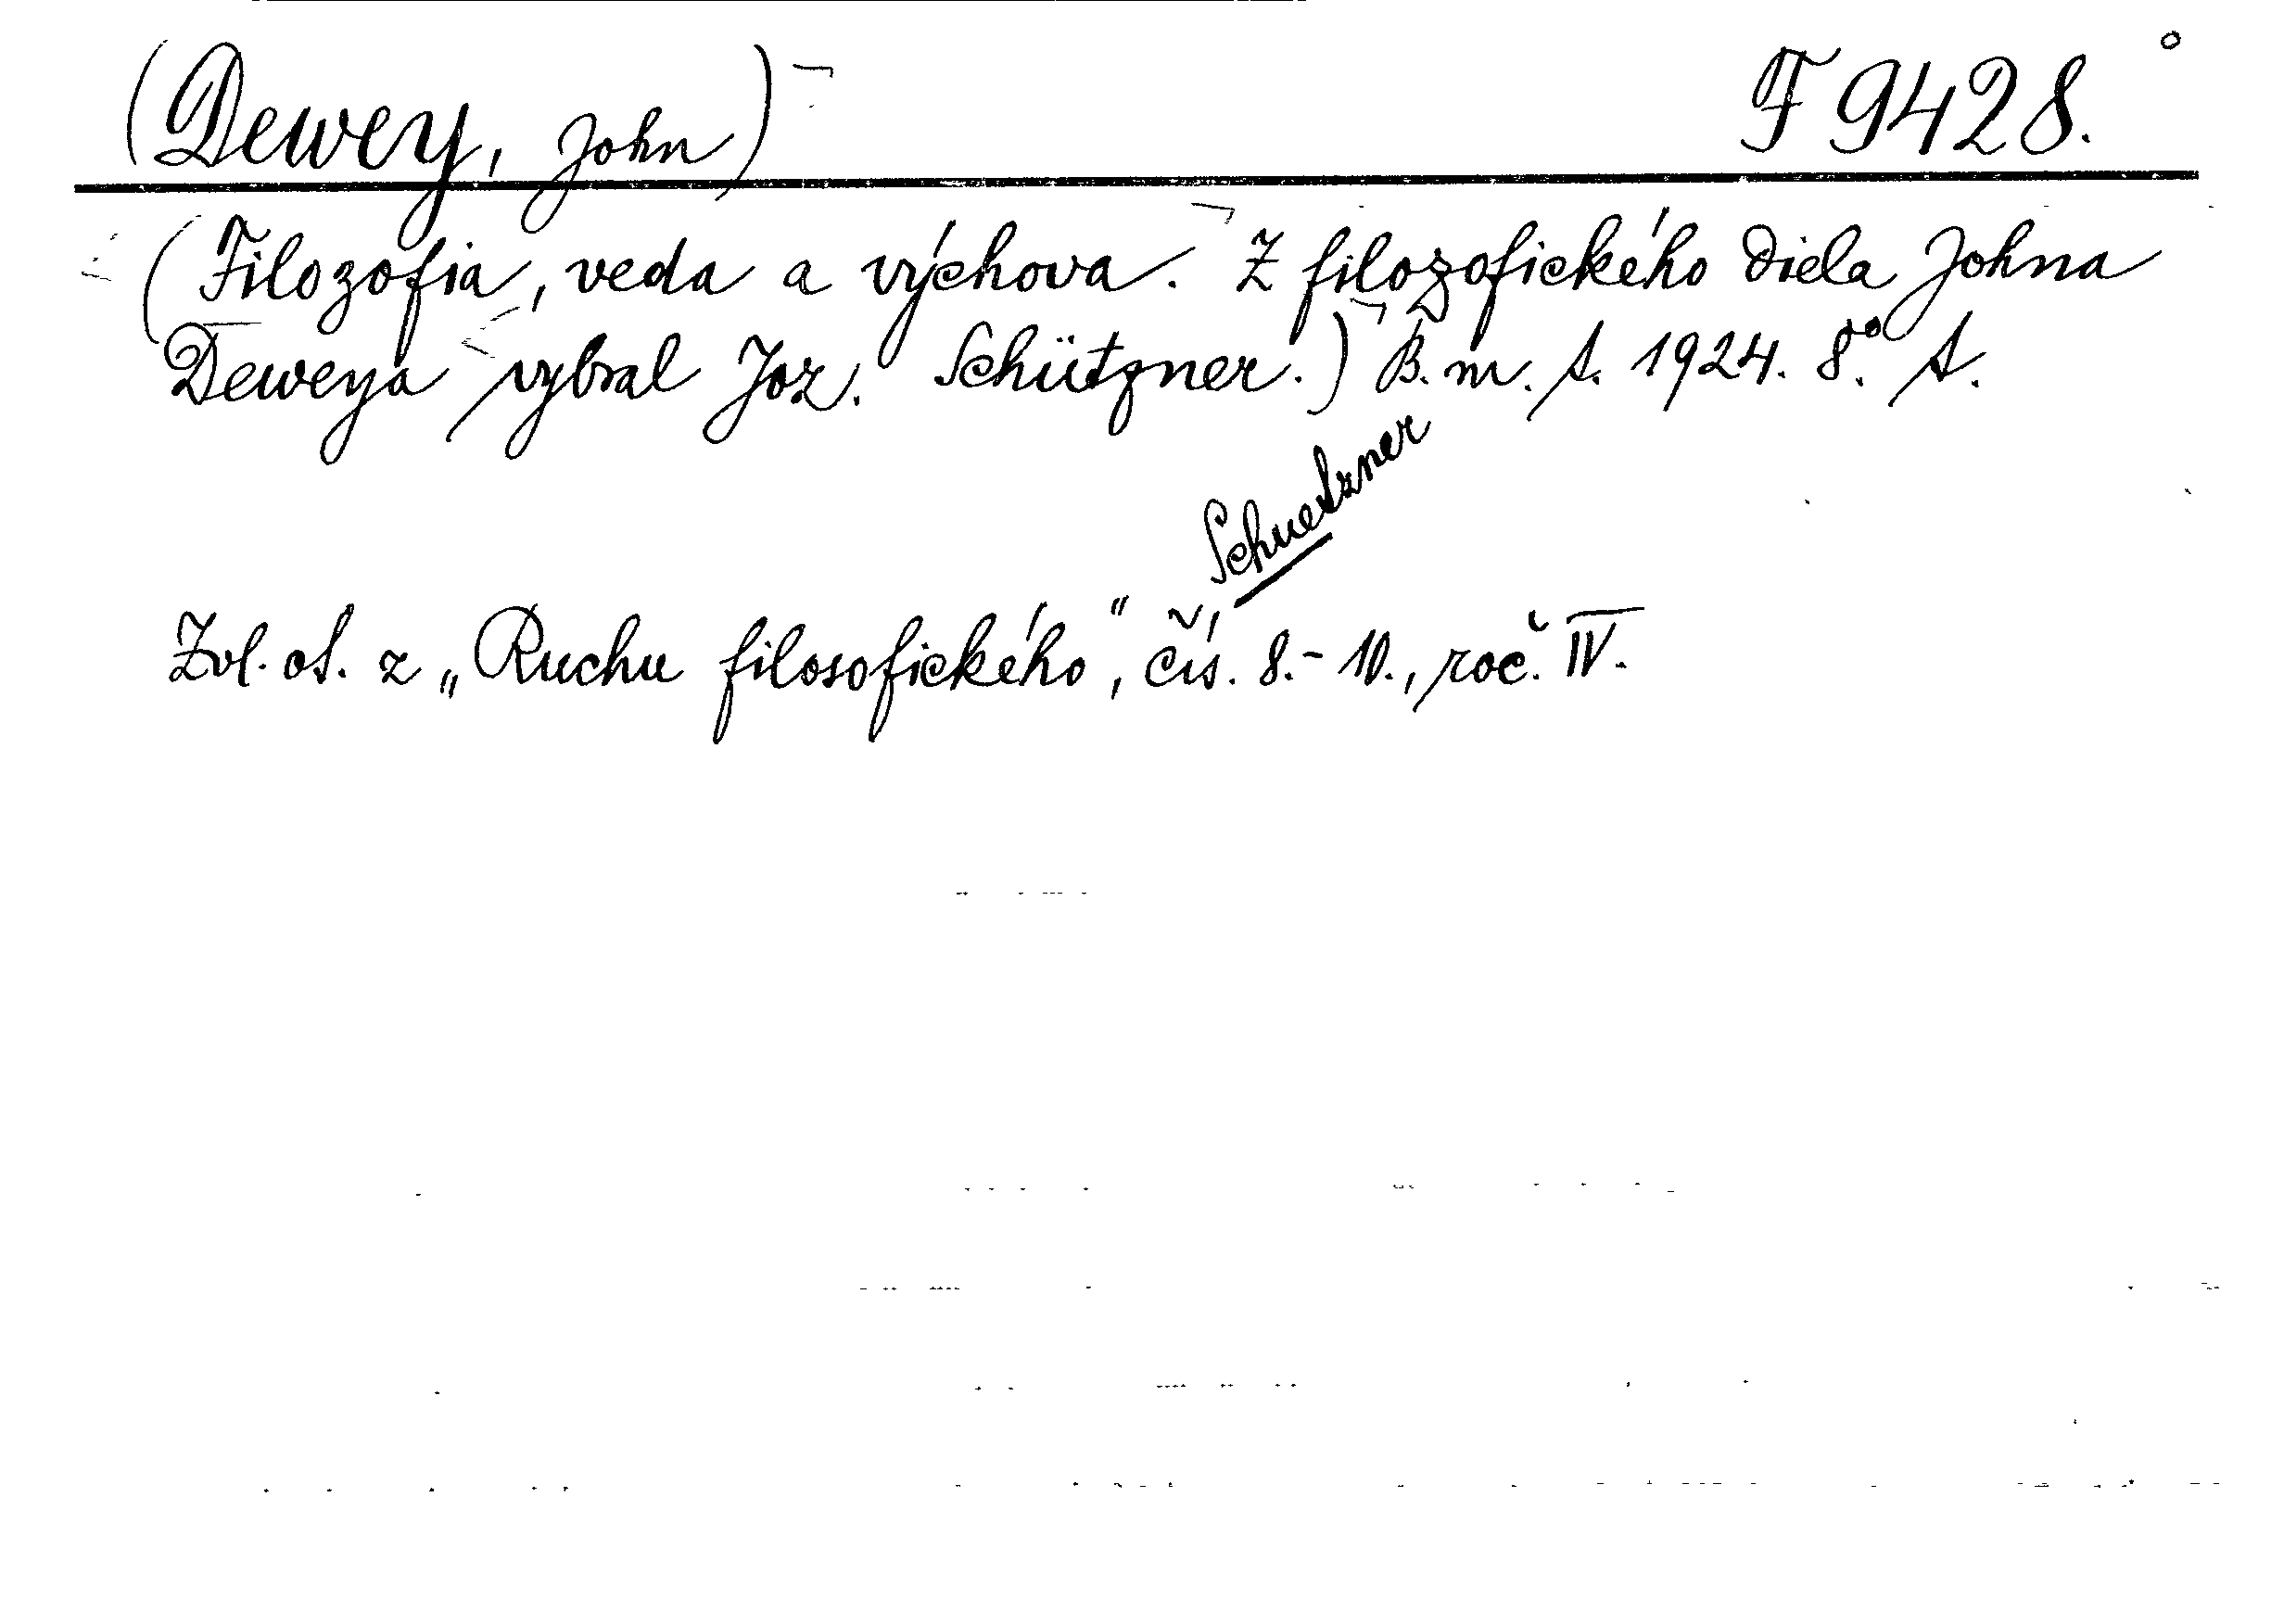 (Dewey, John) F 9428.
(Filozofia, veda a výchova. Z filozofického diela Johna
Deweya vybral Joz. Schützner.) B. m. t. 1924. 8.° t.
Schuetzner
Zvl. ot. z „Ruchu filosofického", čís. 8.-10., roč. IV.